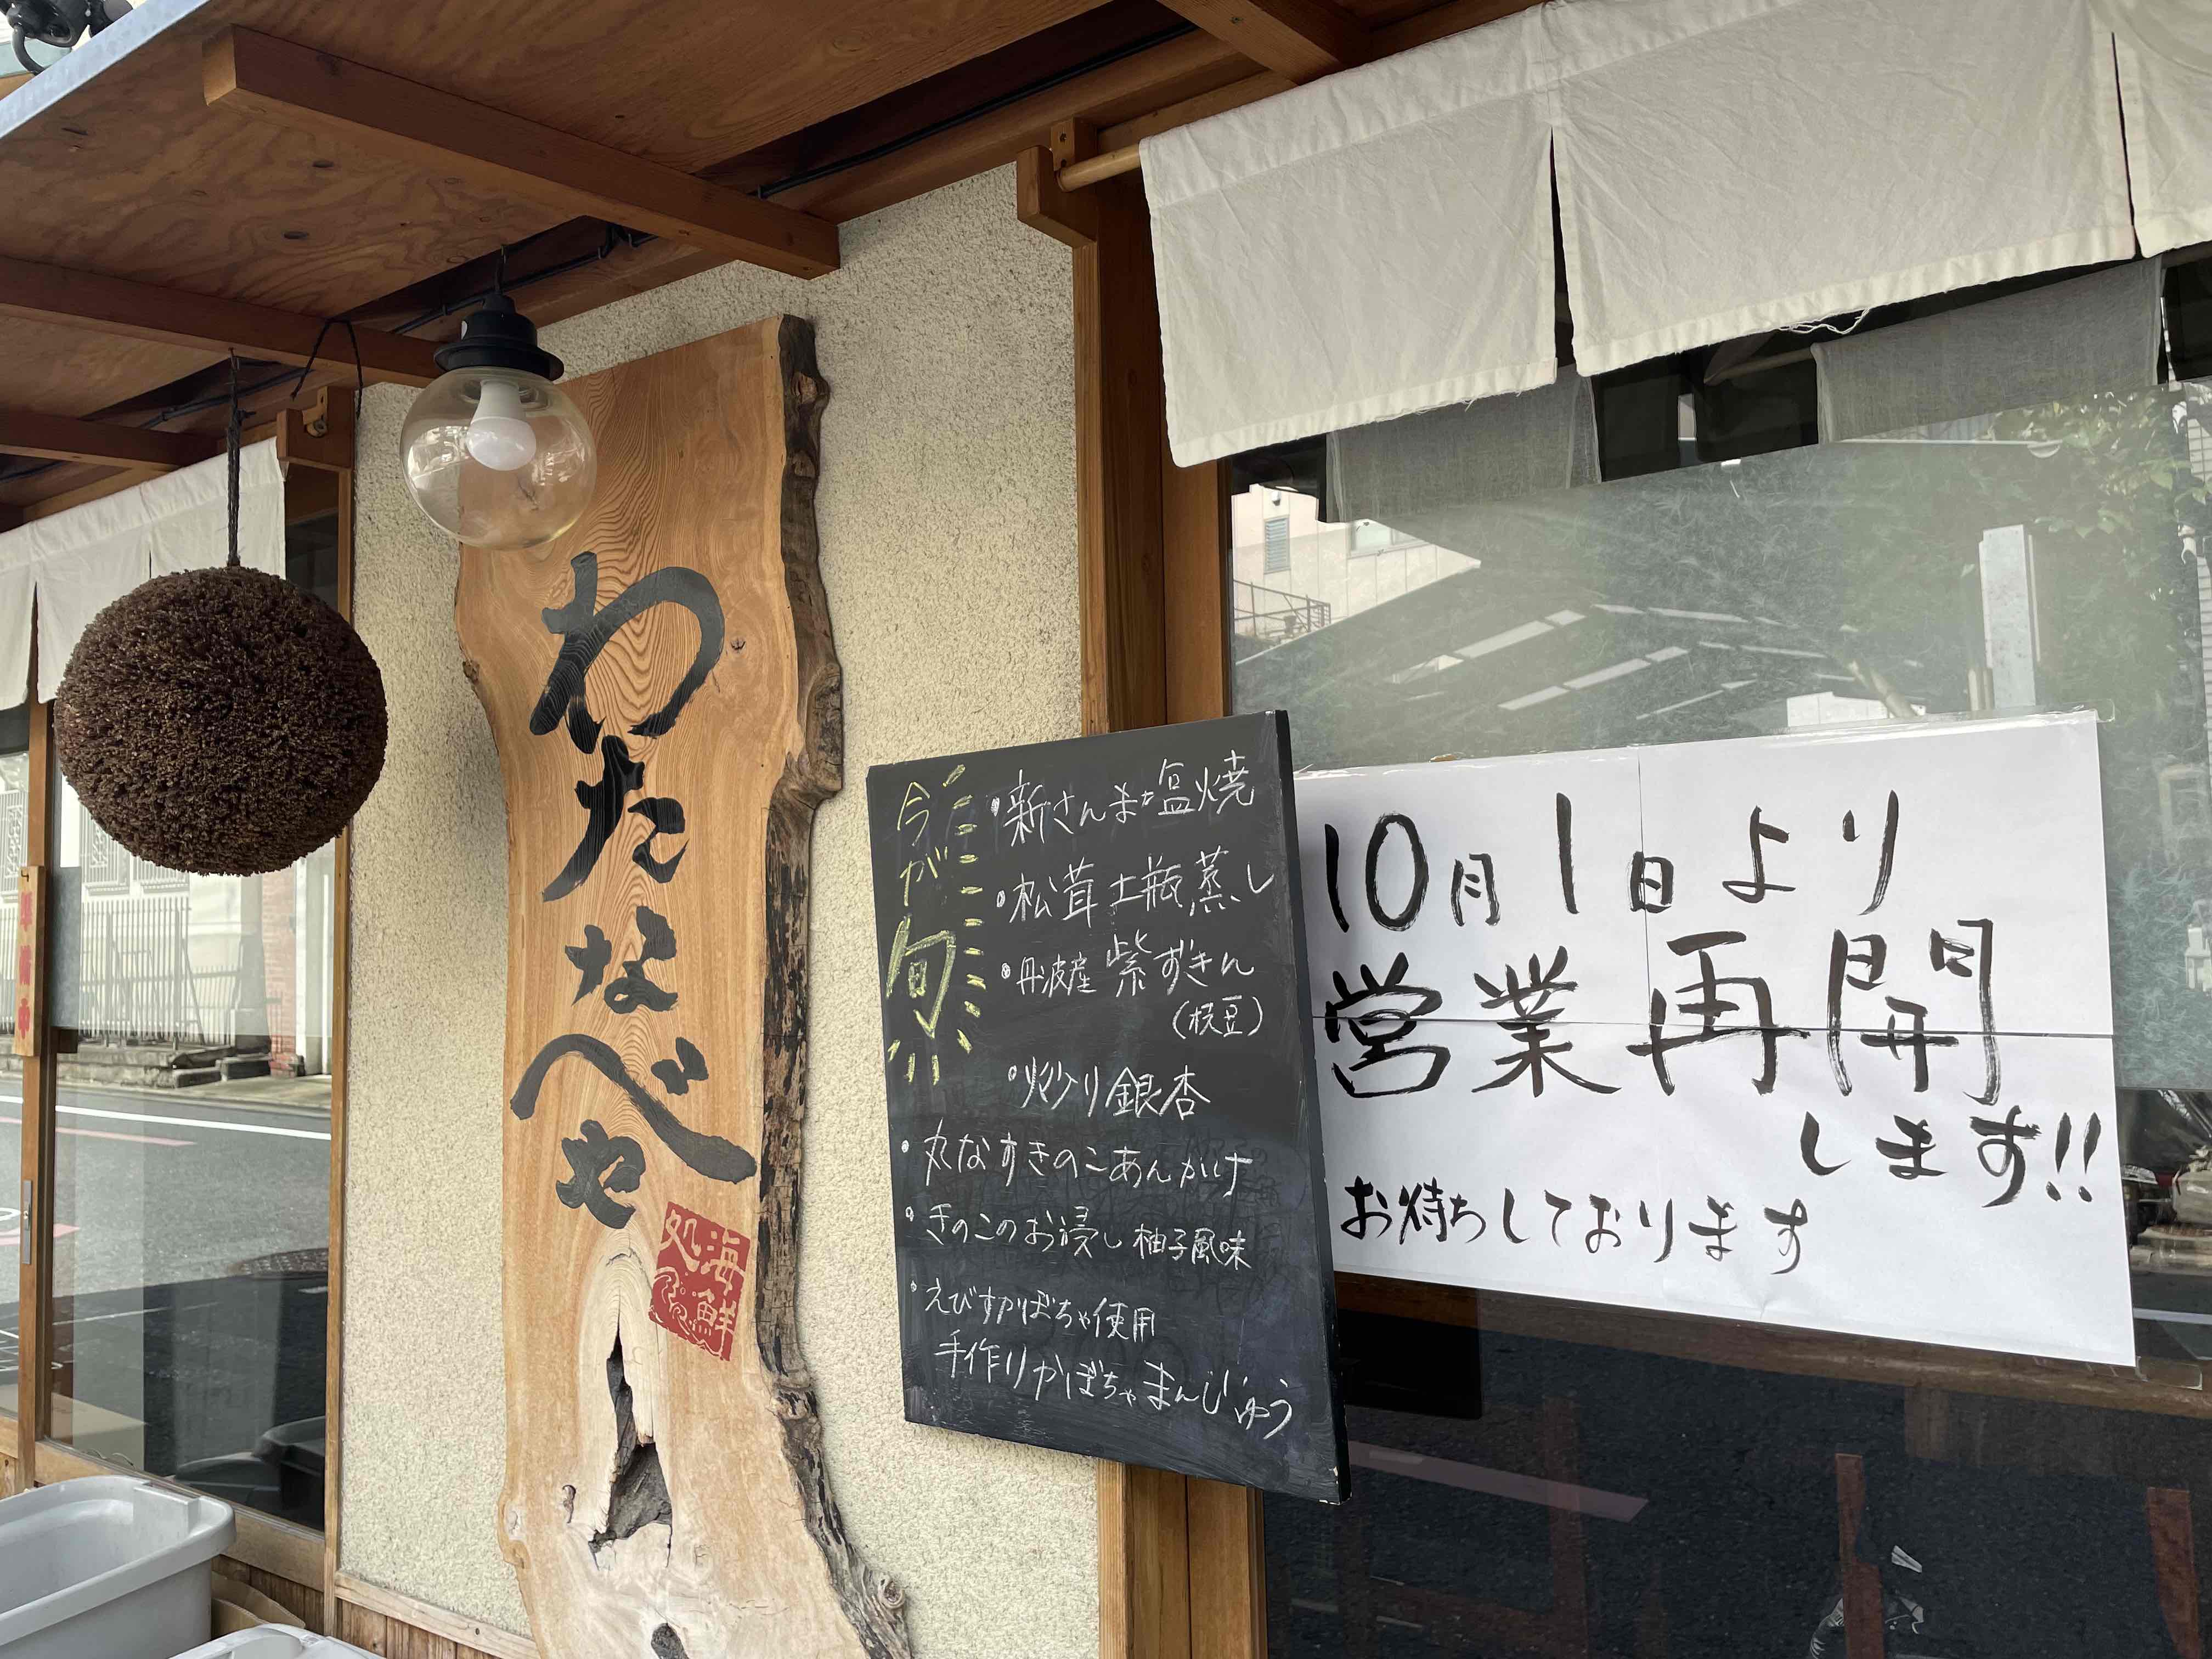 わたなべや
海鮮
処
今が旬
・新さんま塩焼
・松茸土瓶蒸し
・丹波産 紫ずきん
(枝豆)
・炒り銀杏
・丸なすきのこあんかけ
・きのこのお浸し 柚子風味
・えびすかぼちゃ使用
手作りかぼちゃまんじゅう
10月1日より
営業再開
します!!
お待ちしております
準備中